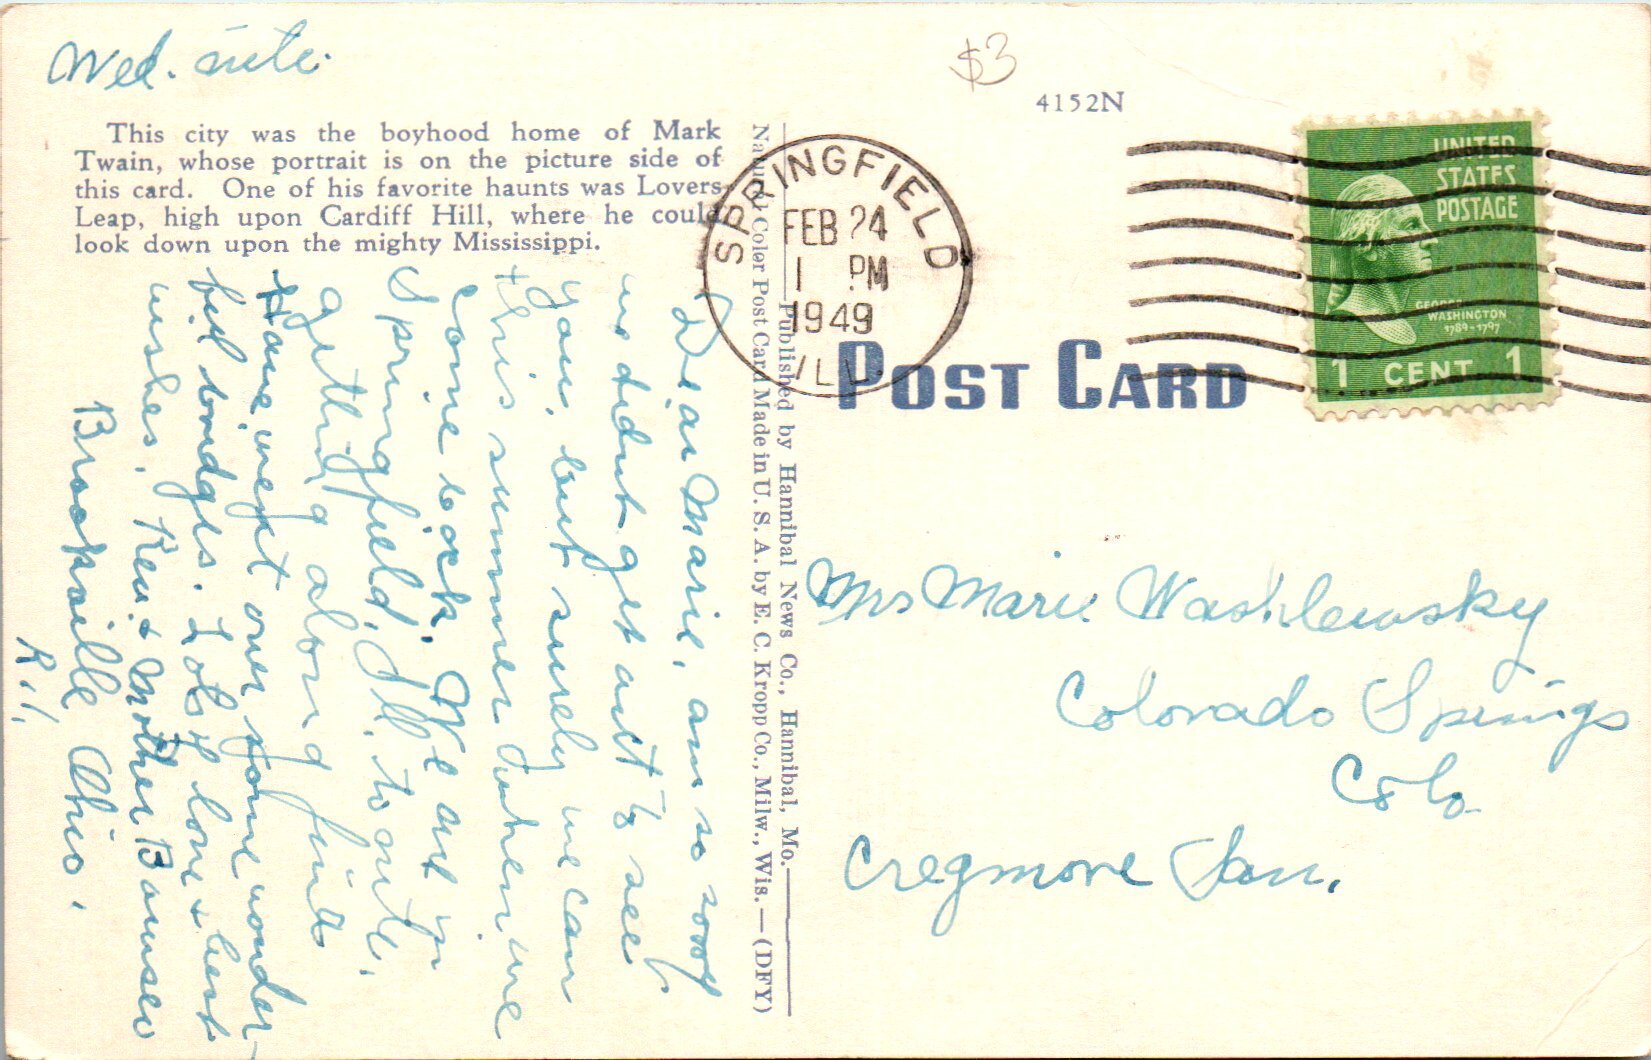 Wed. nite.
This city was the boyhood home of Mark
Twain, whose portrait is on the picture side of
this card. One of his favorite haunts was Lovers
Leap, high upon Cardiff Hill, where he could
look down upon the mighty Mississippi.
Dear Marie, am so sorry
we didnt get out to see
you, but surely we can
this summer when we
come back. We are in
Springfield, Ill. to nite,
getting along fine
Have went over some wonder-
ful bridges. Lots of love & best
wishes. Rev. & Mother Bowser
Brookville Ohio.
R.1,
Published by Hannibal News Co., Hannibal, Mo.
Natural Color Post Card Made in U. S. A. by E. C. Kropp Co., Milw., Wis.—(DFY)
$3
4152N
SPRINGFIELD
FEB 24
1 PM
1949
ILL.
UNITED
STATES
POSTAGE
GEORGE
WASHINGTON
1789-1797
1 CENT 1
POST CARD
Mrs Marie Washlewsky
Colorado Springs
Colo.
Cregmore San.